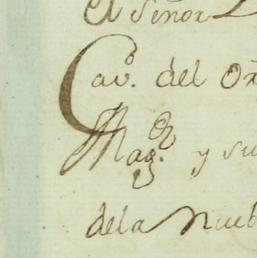 El Señor
Cav.º del Or
Mag.d y su
dela Nueb